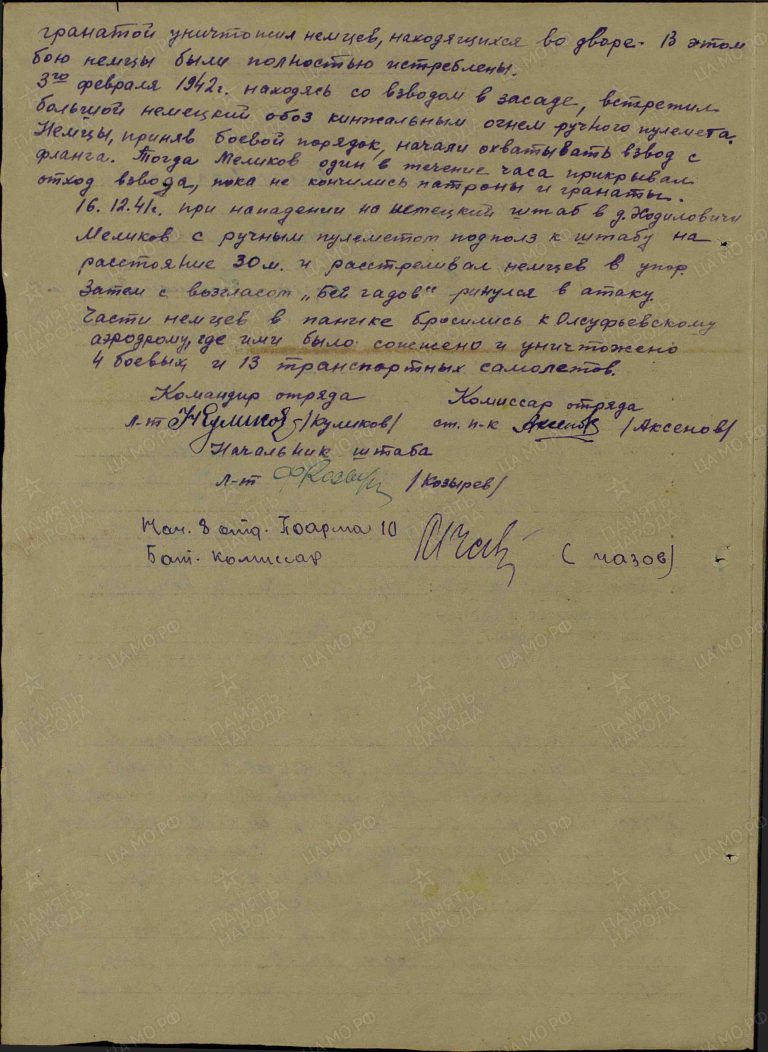 гранатой уничтожил немцев, находящихся во дворе. В этом
бою немцы были полностью истреблены.
3го февраля 1942г. находясь со взводом в засаде, встретил
большой немецкий обоз кинжальным огнем ручного пулемета.
Немцы, приняв боевой порядок, начали охватывать взвод с
фланга. Тогда Меликов один в течение часа прикрывал
отход взвода, пока не кончились патроны и гранаты.
16.12.41г. при нападении на немецкий штаб в д. Ходиловичи
Меликов с ручным пулеметом подполз к штабу на
расстояние 30 м. и расстреливал немцев в упор.
Затем с возгласом „Бей гадов“ ринулся в атаку.
Части немцев в панике бросились к Олсуфьевскому
аэродрому, где ими было сожжено и уничтожено
4 боевых и 13 транспортных самолетов.
Командир отряда Комиссар отряда
л-т Куликов /Куликов/ ст. п-к Аксенов /Аксенов/
Начальник штаба
л-т Козырев /Козырев/
Нач. 8 отд. Поарма 10
Бат. комиссар ( Чазов)
ПАМЯТЬ НАРОДА
ЦАМО.РФ